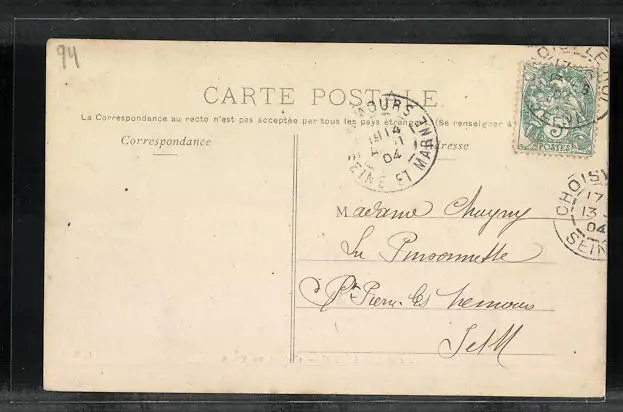 94
CARTE POSTALE
La Correspondance au recto n'est pas acceptée par tous les pays étrangers (Se renseigner à
Correspondance
dresse
MOURS
14
04
SEINE ET MARNE
5
POSTES
CHOISY
17
13
04
SEIN
Madame Chugny
La Pinsonnette
St Pierre les Nemours
S et M